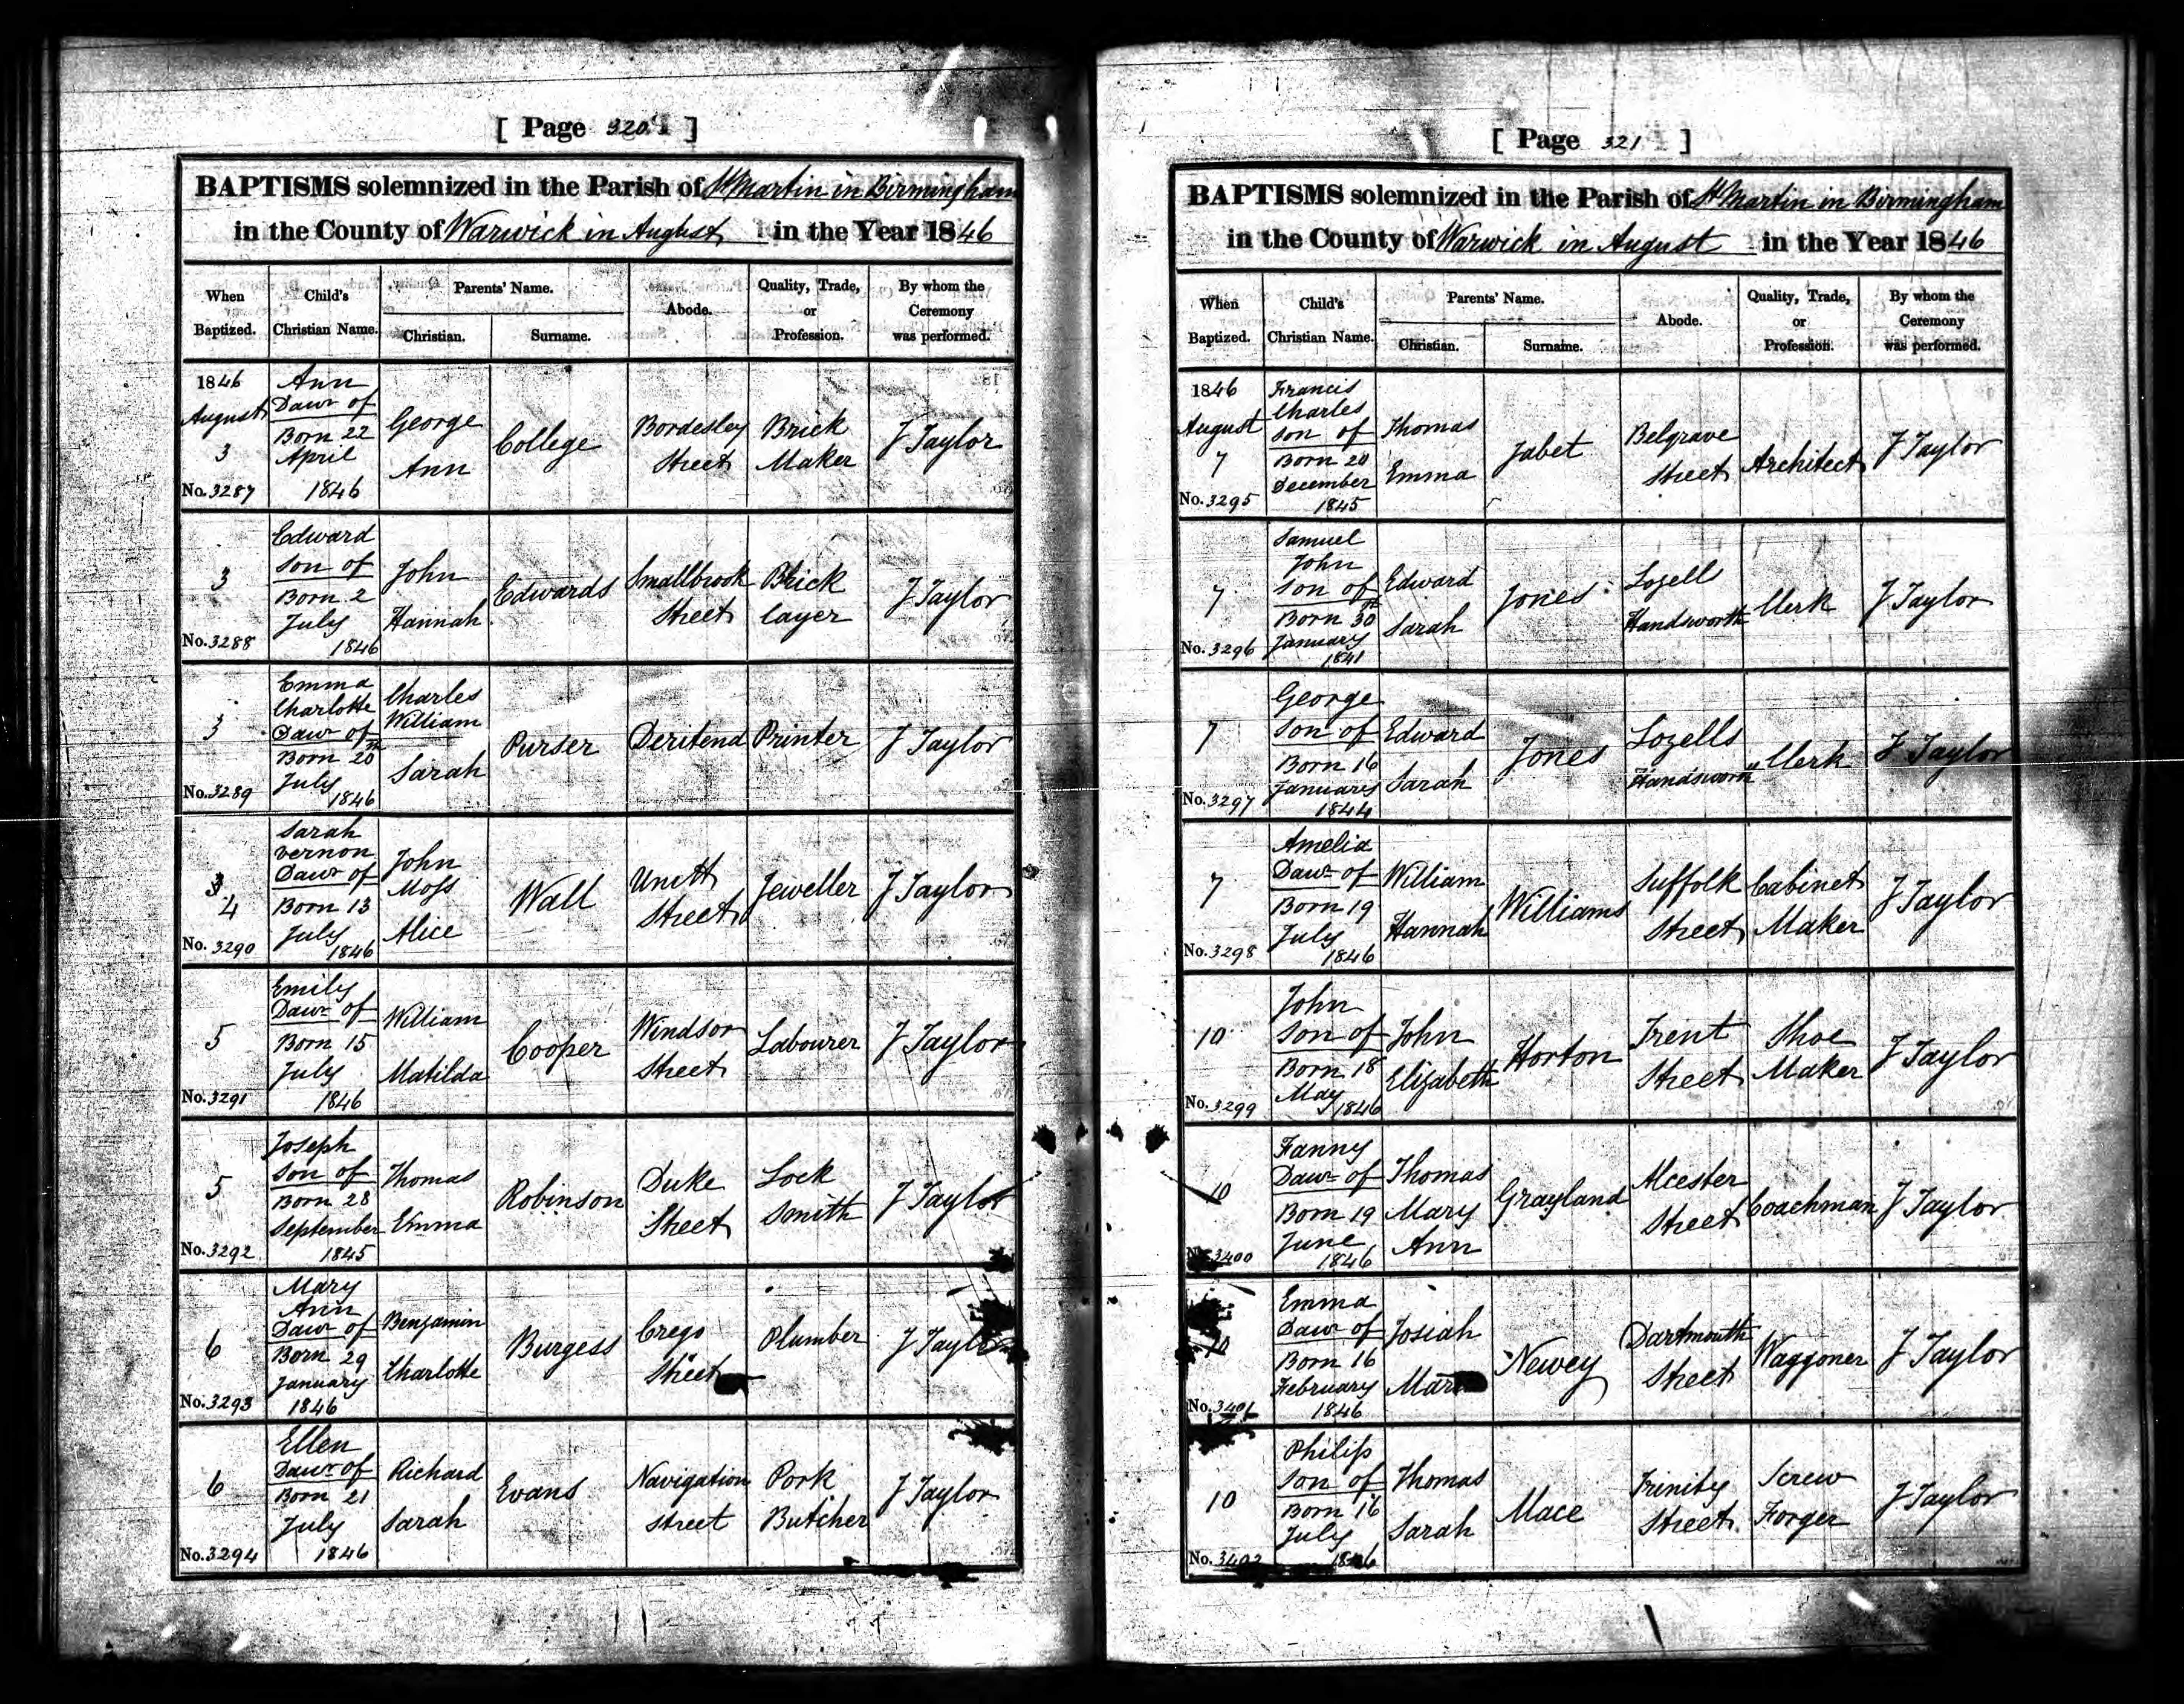 [ Page 320 ]
BAPTISMS solemnized in the Parish of St Martin in Birmingham
in the County of Warwick in August in the Year 1846
When Baptized.
Child's Christian Name.
Parents' Name.
Christian.
Surname.
Abode.
Quality, Trade, or Profession.
By whom the Ceremony was performed.
1846
August
3
No. 3287
Ann
Dawr of
Born 22
April
1846
George
Ann
College
Bordesley
Street
Brick
Maker
J Taylor
3
No. 3288
Edward
Son of
Born 2
July
1846
John
Hannah
Edwards
Smallbrook
Street
Brick
layer
J Taylor
3
No. 3289
Emma
Charlotte
Dawr of
Born 20th
July
1846
Charles
William
Sarah
Purser
Deritend
Printer
J Taylor
4
No. 3290
Sarah
Vernon
Dawr of
Born 13
July
1846
John
Moss
Alice
Wall
Unett
Street
Jeweller
J Taylor
5
No. 3291
Emily
Dawr of
Born 15
July
1846
William
Matilda
Cooper
Windsor
Street
Labourer
J Taylor
5
No. 3292
Joseph
Son of
Born 28
September
1845
Thomas
Emma
Robinson
Duke
Street
Lock
Smith
J Taylor
6
No. 3293
Mary
Ann
Dawr of
Born 29
January
1846
Benjamin
Charlotte
Burgess
Crego
Street
Plumber
J Taylor
6
No. 3294
Ellen
Dawr of
Born 21
July
1846
Richard
Sarah
Evans
Navigation
Street
Pork
Butcher
J Taylor
[ Page 321 ]
BAPTISMS solemnized in the Parish of St Martin in Birmingham
in the County of Warwick in August in the Year 1846
When Baptized.
Child's Christian Name.
Parents' Name.
Christian.
Surname.
Abode.
Quality, Trade, or Profession.
By whom the Ceremony was performed.
1846
August
7
No. 3295
Francis
Charles
Son of
Born 20
December
1845
Thomas
Emma
Jabet
Belgrave
Street
Architect
J Taylor
7
No. 3296
Samuel
John
Son of
Born 30th
January
1841
Edward
Sarah
Jones
Lozell
Handsworth
Clerk
J Taylor
7
No. 3297
George
Son of
Born 16
January
1844
Edward
Sarah
Jones
Lozells
Handsworth
Clerk
J Taylor
7
No. 3298
Amelia
Dawr of
Born 19
July
1846
William
Hannah
Williams
Suffolk
Street
Cabinet
Maker
J Taylor
10
No. 3299
John
Son of
Born 18
May
1846
John
Elizabeth
Horton
Trent
Street
Shoe
Maker
J Taylor
10
No. 3400
Fanny
Dawr of
Born 19
June
1846
Thomas
Mary
Ann
Grayland
Alcester
Street
Coachman
J Taylor
10
No. 3401
Emma
Dawr of
Born 16
February
1846
Josiah
Newey
Dartmouth
Street
Waggoner
J Taylor
10
No. 3402
Philip
Son of
Born 16
July
1846
Thomas
Sarah
Mace
Trinity
Street
Screw
Forger
J Taylor